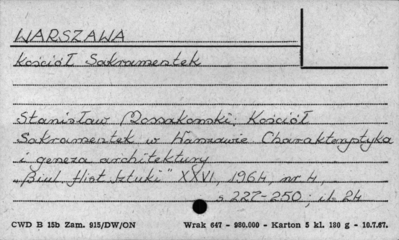 WARSZAWA
Kościół Sakramentek
Stanisław Mossakowski: Kościół
Sakramentek w Warszawie Charakterystyka
i geneza architektury
„Biul Hist Sztuki" XXVI, 1964, nr 4,
s 227-250; il. 24
CWD B 15b Zam. 915/DW/ON Wrak 647 - 980.000 - Karton 5 kl. 180 g - 10.7.67.